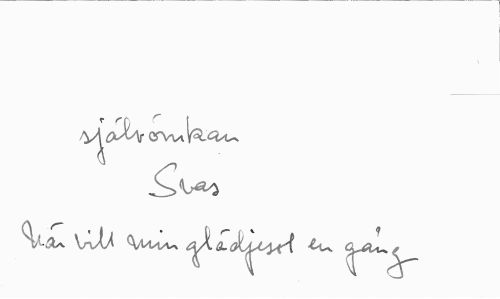 självömkan
Svas
När vill min glädjesol en gång